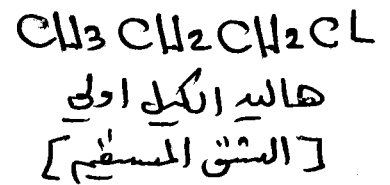 CH3 CH2 CH2 CL
هاليد الكيل اولي
[المشتق المستقيم]